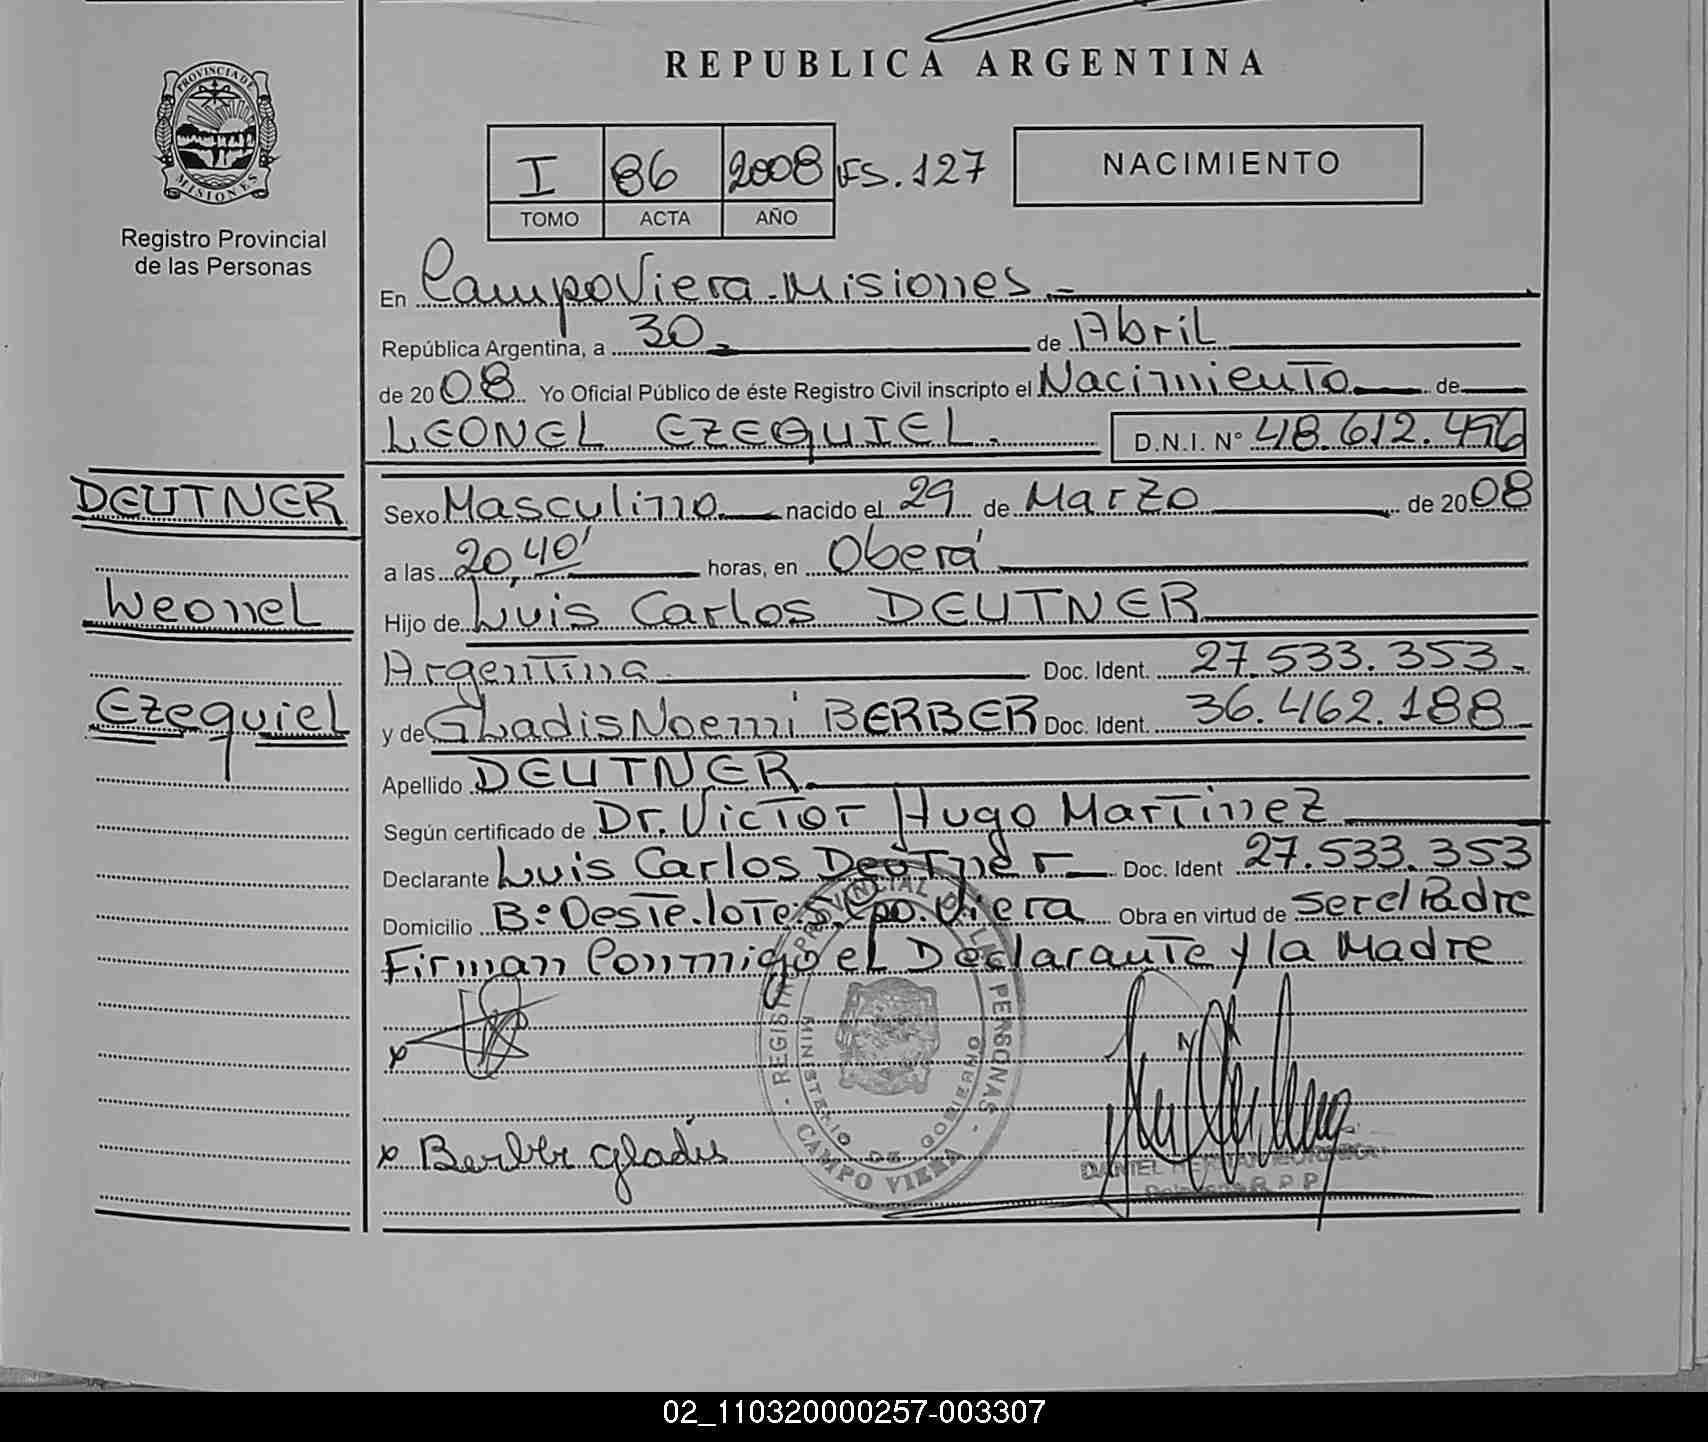 REPUBLICA ARGENTINA
PROVINCIA DE
MISIONES
Registro Provincial
de las Personas
I 86 2008 FS. 127
TOMO ACTA AÑO
NACIMIENTO
En Campo Viera - Misiones.-
República Argentina, a 30.- de Abril
de 2008 Yo Oficial Público de éste Registro Civil inscripto el Nacimiento de
LEONEL EZEQUIEL. D.N.I. N° 48.612.496
DEUTNER
Leonel
Ezequiel
Sexo Masculino nacido el 29 de Marzo de 2008
a las 20,40' horas, en Oberá
Hijo de Luis Carlos DEUTNER
Argentina Doc. Ident. 27.533.353.-
y de Gladis Noemi BERBER Doc. Ident. 36.462.188
Apellido DEUTNER.
Según certificado de Dr. Victor Hugo Martinez
Declarante Luis Carlos Deutner Doc. Ident 27.533.353
Domicilio B° Oeste. lote Cpo. Viera Obra en virtud de ser el Padre
Firman Conmigo el Declarante y la Madre
x
x Berber gladis
REGISTRO PROVINCIAL DE LAS PERSONAS - CAMPO VIERA -
MINISTERIO DE GOBIERNO
DANIEL
R. P. P.
02_110320000257-003307